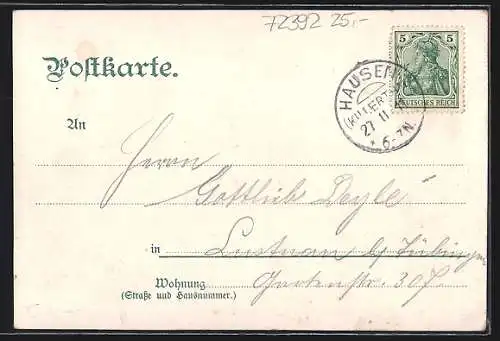 72392 25,-
Postkarte.
5 5
DEUTSCHES REICH
HAUSEN
(KILLERT
27 11
* 6-7N.
An
Herrn
Gottlieb Deyle
in Lustnau b/ Tübingen
Wohnung Gartenstr. 307
(Straße und Hausnummer.)